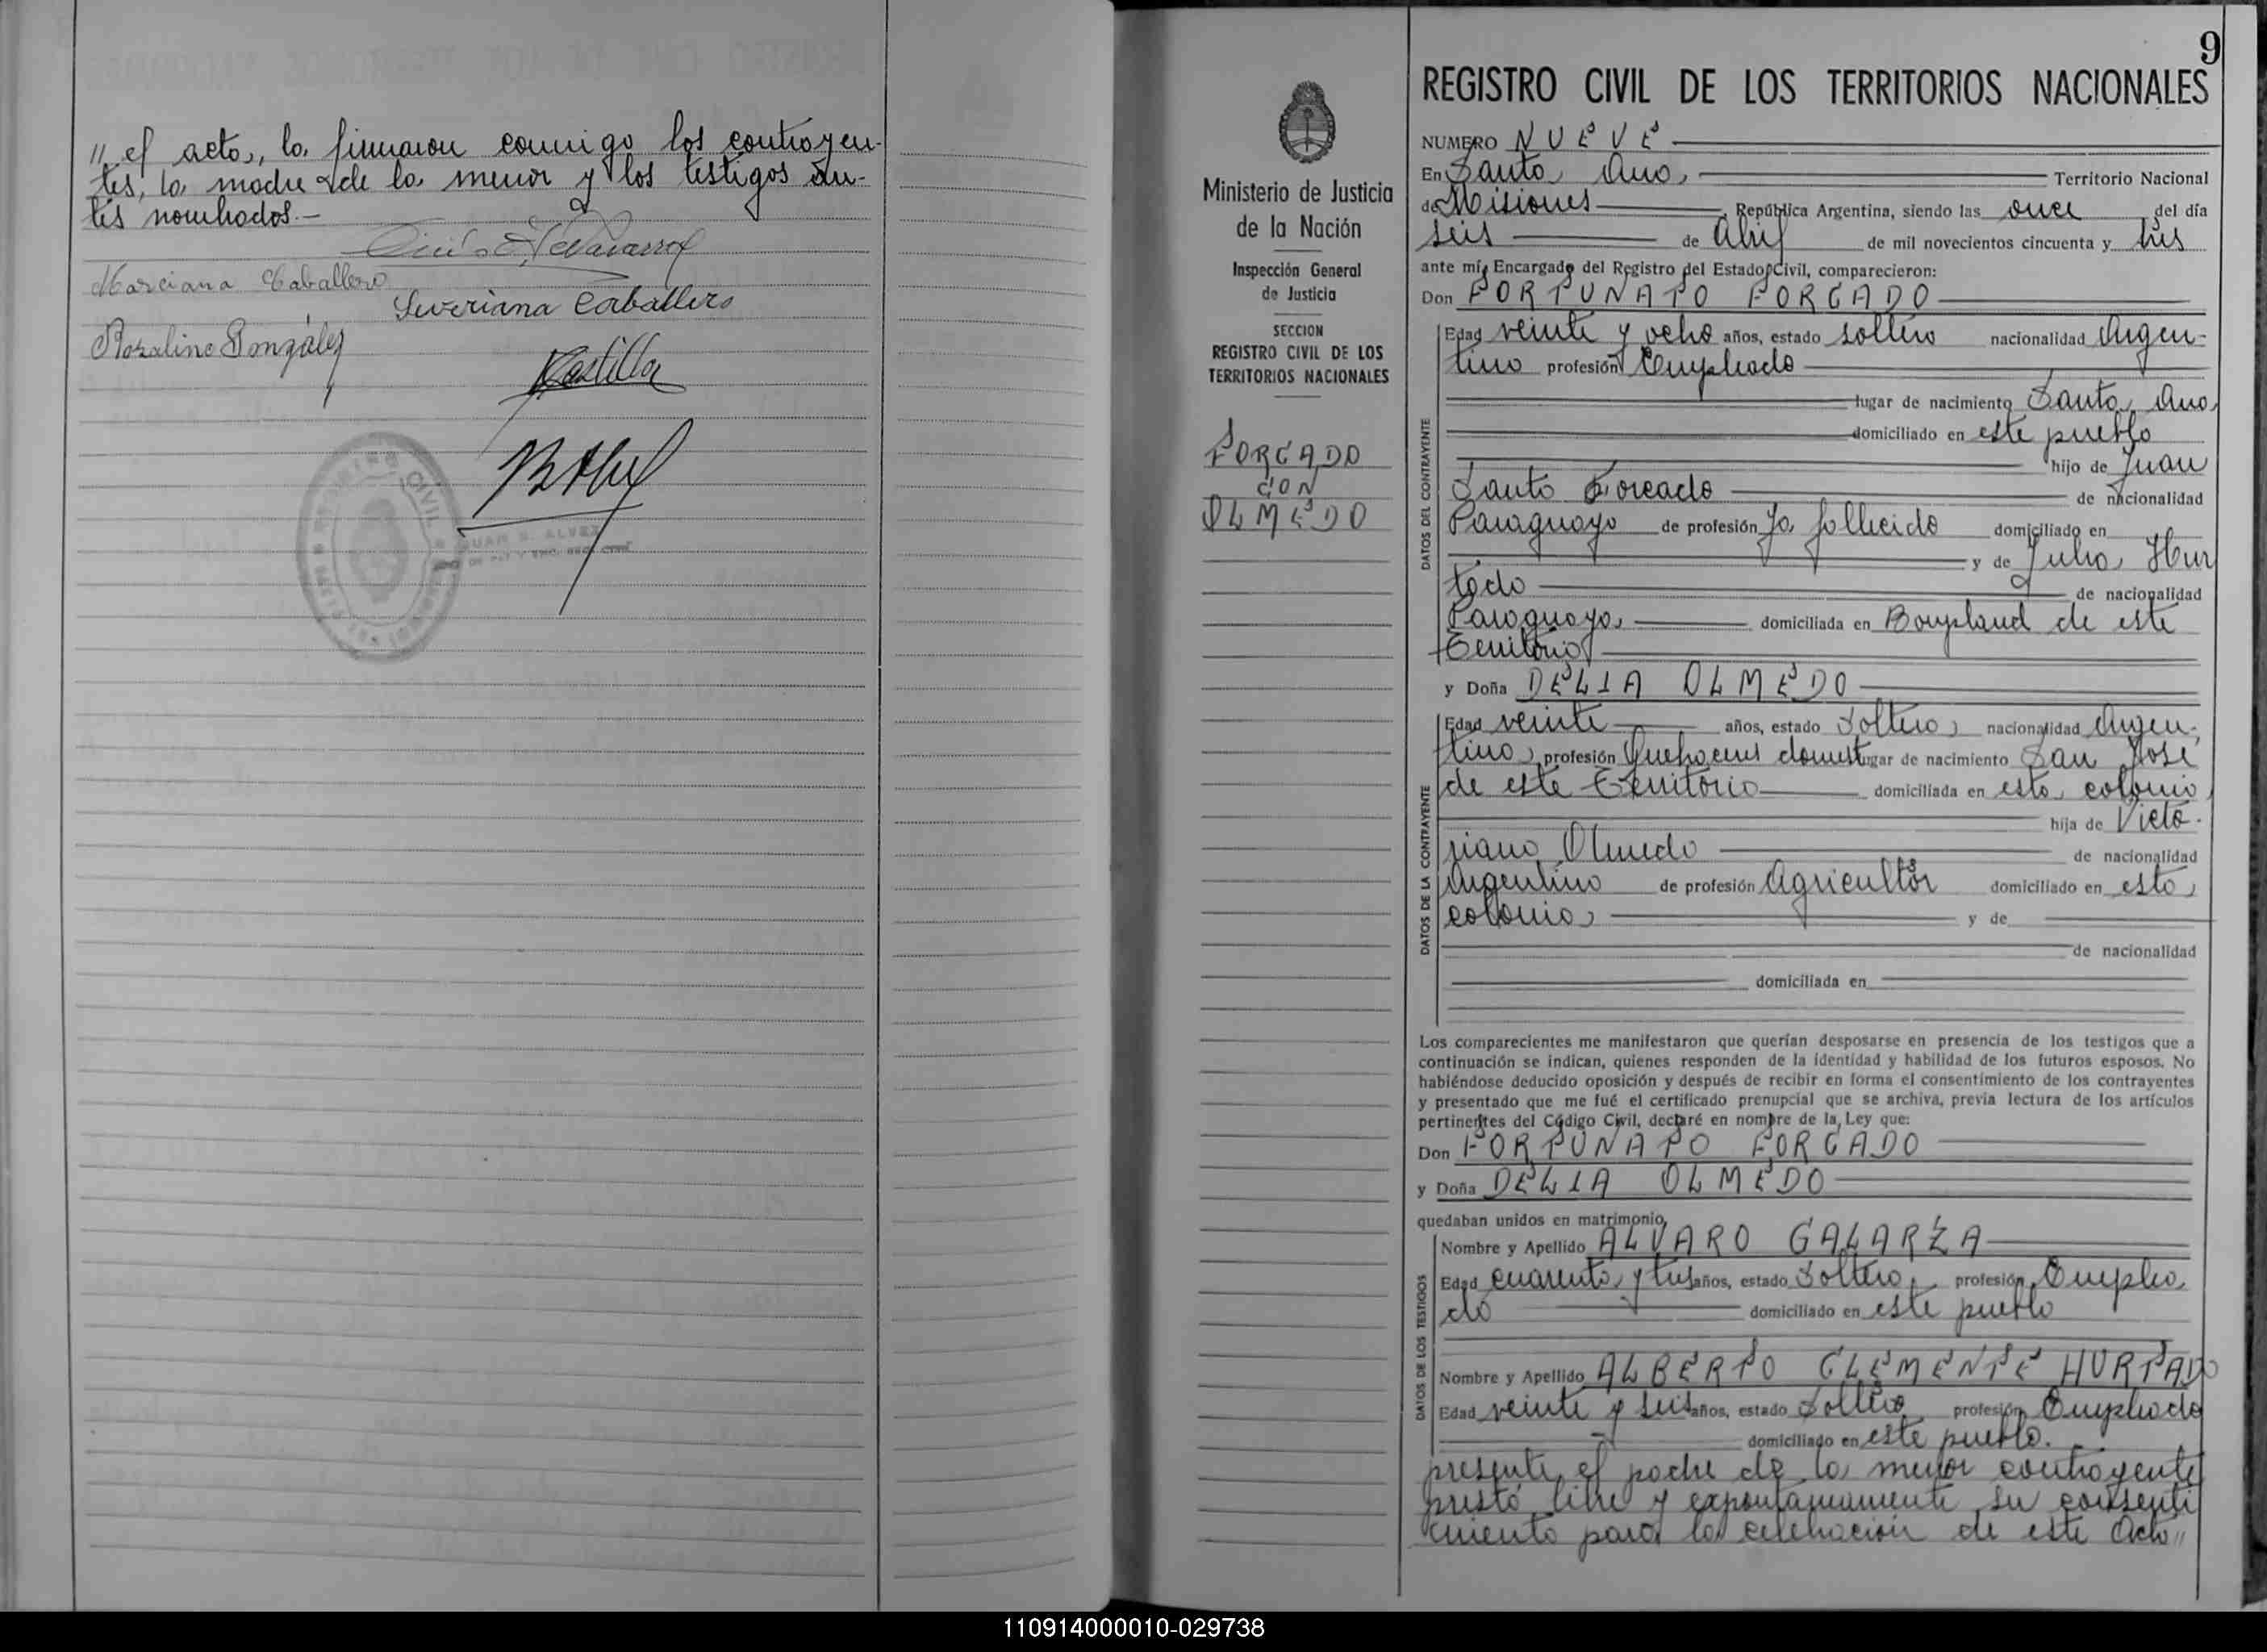 " el acto, la firmaron conmigo los contrayen-
tes, la madre de la menor y los testigos an-
tes nombrados.-
Marciana Caballero
Severiana Caballero
Rosalino González
Castilla
REGISTRO CIVIL
JUAN B. ALVEZ
9
REGISTRO CIVIL DE LOS TERRITORIOS NACIONALES
Ministerio de Justicia
de la Nación
Inspección General
de Justicia
SECCION
REGISTRO CIVIL DE LOS
TERRITORIOS NACIONALES
FORCADO
CON
OLMEDO
NUMERO NUEVE
En Santa Ana, Territorio Nacional
de Misiones República Argentina, siendo las once del día
seis de Abril de mil novecientos cincuenta y tres
ante mí, Encargado del Registro del Estado Civil, comparecieron:
Don FORTUNATO FORCADO
DATOS DEL CONTRAYENTE
Edad veinte y ocho años, estado soltero nacionalidad Argen-
tino profesión Empleado
lugar de nacimiento Santa Ana,
domiciliado en este pueblo
hijo de Juan
Santo Forcado de nacionalidad
Paraguayo de profesión Ya fallecido domiciliado en
y de Julia Hur
tado de nacionalidad
Paraguaya, domiciliada en Bonpland de este
Territorio
y Doña DELIA OLMEDO
DATOS DE LA CONTRAYENTE
Edad veinte años, estado Soltera, nacionalidad Argen-
tina, profesión Quehaceres domest lugar de nacimiento San José
de este Territorio domiciliada en esta colonia,
hija de Victo-
riano Olmedo de nacionalidad
Argentino de profesión Agricultor domiciliado en esta
colonia, y de
de nacionalidad
domiciliada en
Los comparecientes me manifestaron que querían desposarse en presencia de los testigos que a
continuación se indican, quienes responden de la identidad y habilidad de los futuros esposos. No
habiéndose deducido oposición y después de recibir en forma el consentimiento de los contrayentes
y presentado que me fué el certificado prenupcial que se archiva, previa lectura de los artículos
pertinentes del Código Civil, declaré en nombre de la Ley que:
Don FORTUNATO FORCADO
y Doña DELIA OLMEDO
quedaban unidos en matrimonio,
DATOS DE LOS TESTIGOS
Nombre y Apellido ALVARO GALARZA
Edad cuarenta y tres años, estado Soltero, profesión Emplea
do domiciliado en este pueblo
Nombre y Apellido ALBERTO CLEMENTE HURTADO
Edad veinte y seis años, estado Soltero profesión Empleado
domiciliado en este pueblo.
presente el padre de la menor contrayente
prestó libre y expontaneamente su consenti
miento para la celebración de este Acto "
110914000010-029738